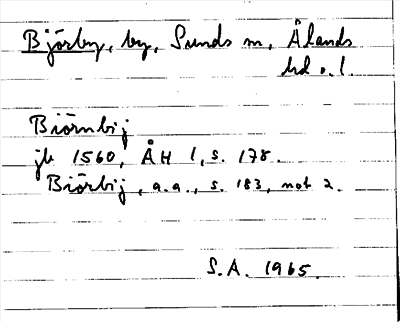 Björby, by, Sunds sn, Ålands
hd o. l.
Biörnbij
jb 1560, ÅH 1, s. 178.
Biörbij, a.a., s. 183, not 2.
S.A. 1965.